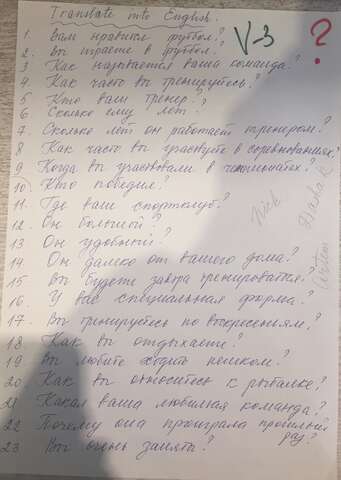 Translate into English.
V-3 ?
1. Вам нравится футбол?
2. Вы играете в футбол?
3 Как называется ваша команда?
4. Как часто вы тренируетесь?
5 Кто ваш тренер?
6 Сколько ему лет?
7. Сколько лет он работает тренером?
8 Как часто вы участвуете в соревнованиях?
9 Когда вы участвовали в чемпионатах?
10. Кто победил?
11. Где ваш спортклуб?
12. Он большой?
13 Он удобный?
14 Он далеко от вашего дома?
15 Вы будете завтра тренироваться?
16. У вас специальная форма?
17. Вы тренируетесь по воскресеньям?
18 Как вы отдыхаете?
19 Вы любите ходить пешком?
20 Как вы относитесь к рыбалке?
21 Какая ваша любимая команда?
22 Почему она проиграла прошлый
раз?
23 Вы очень заняты?
Nick